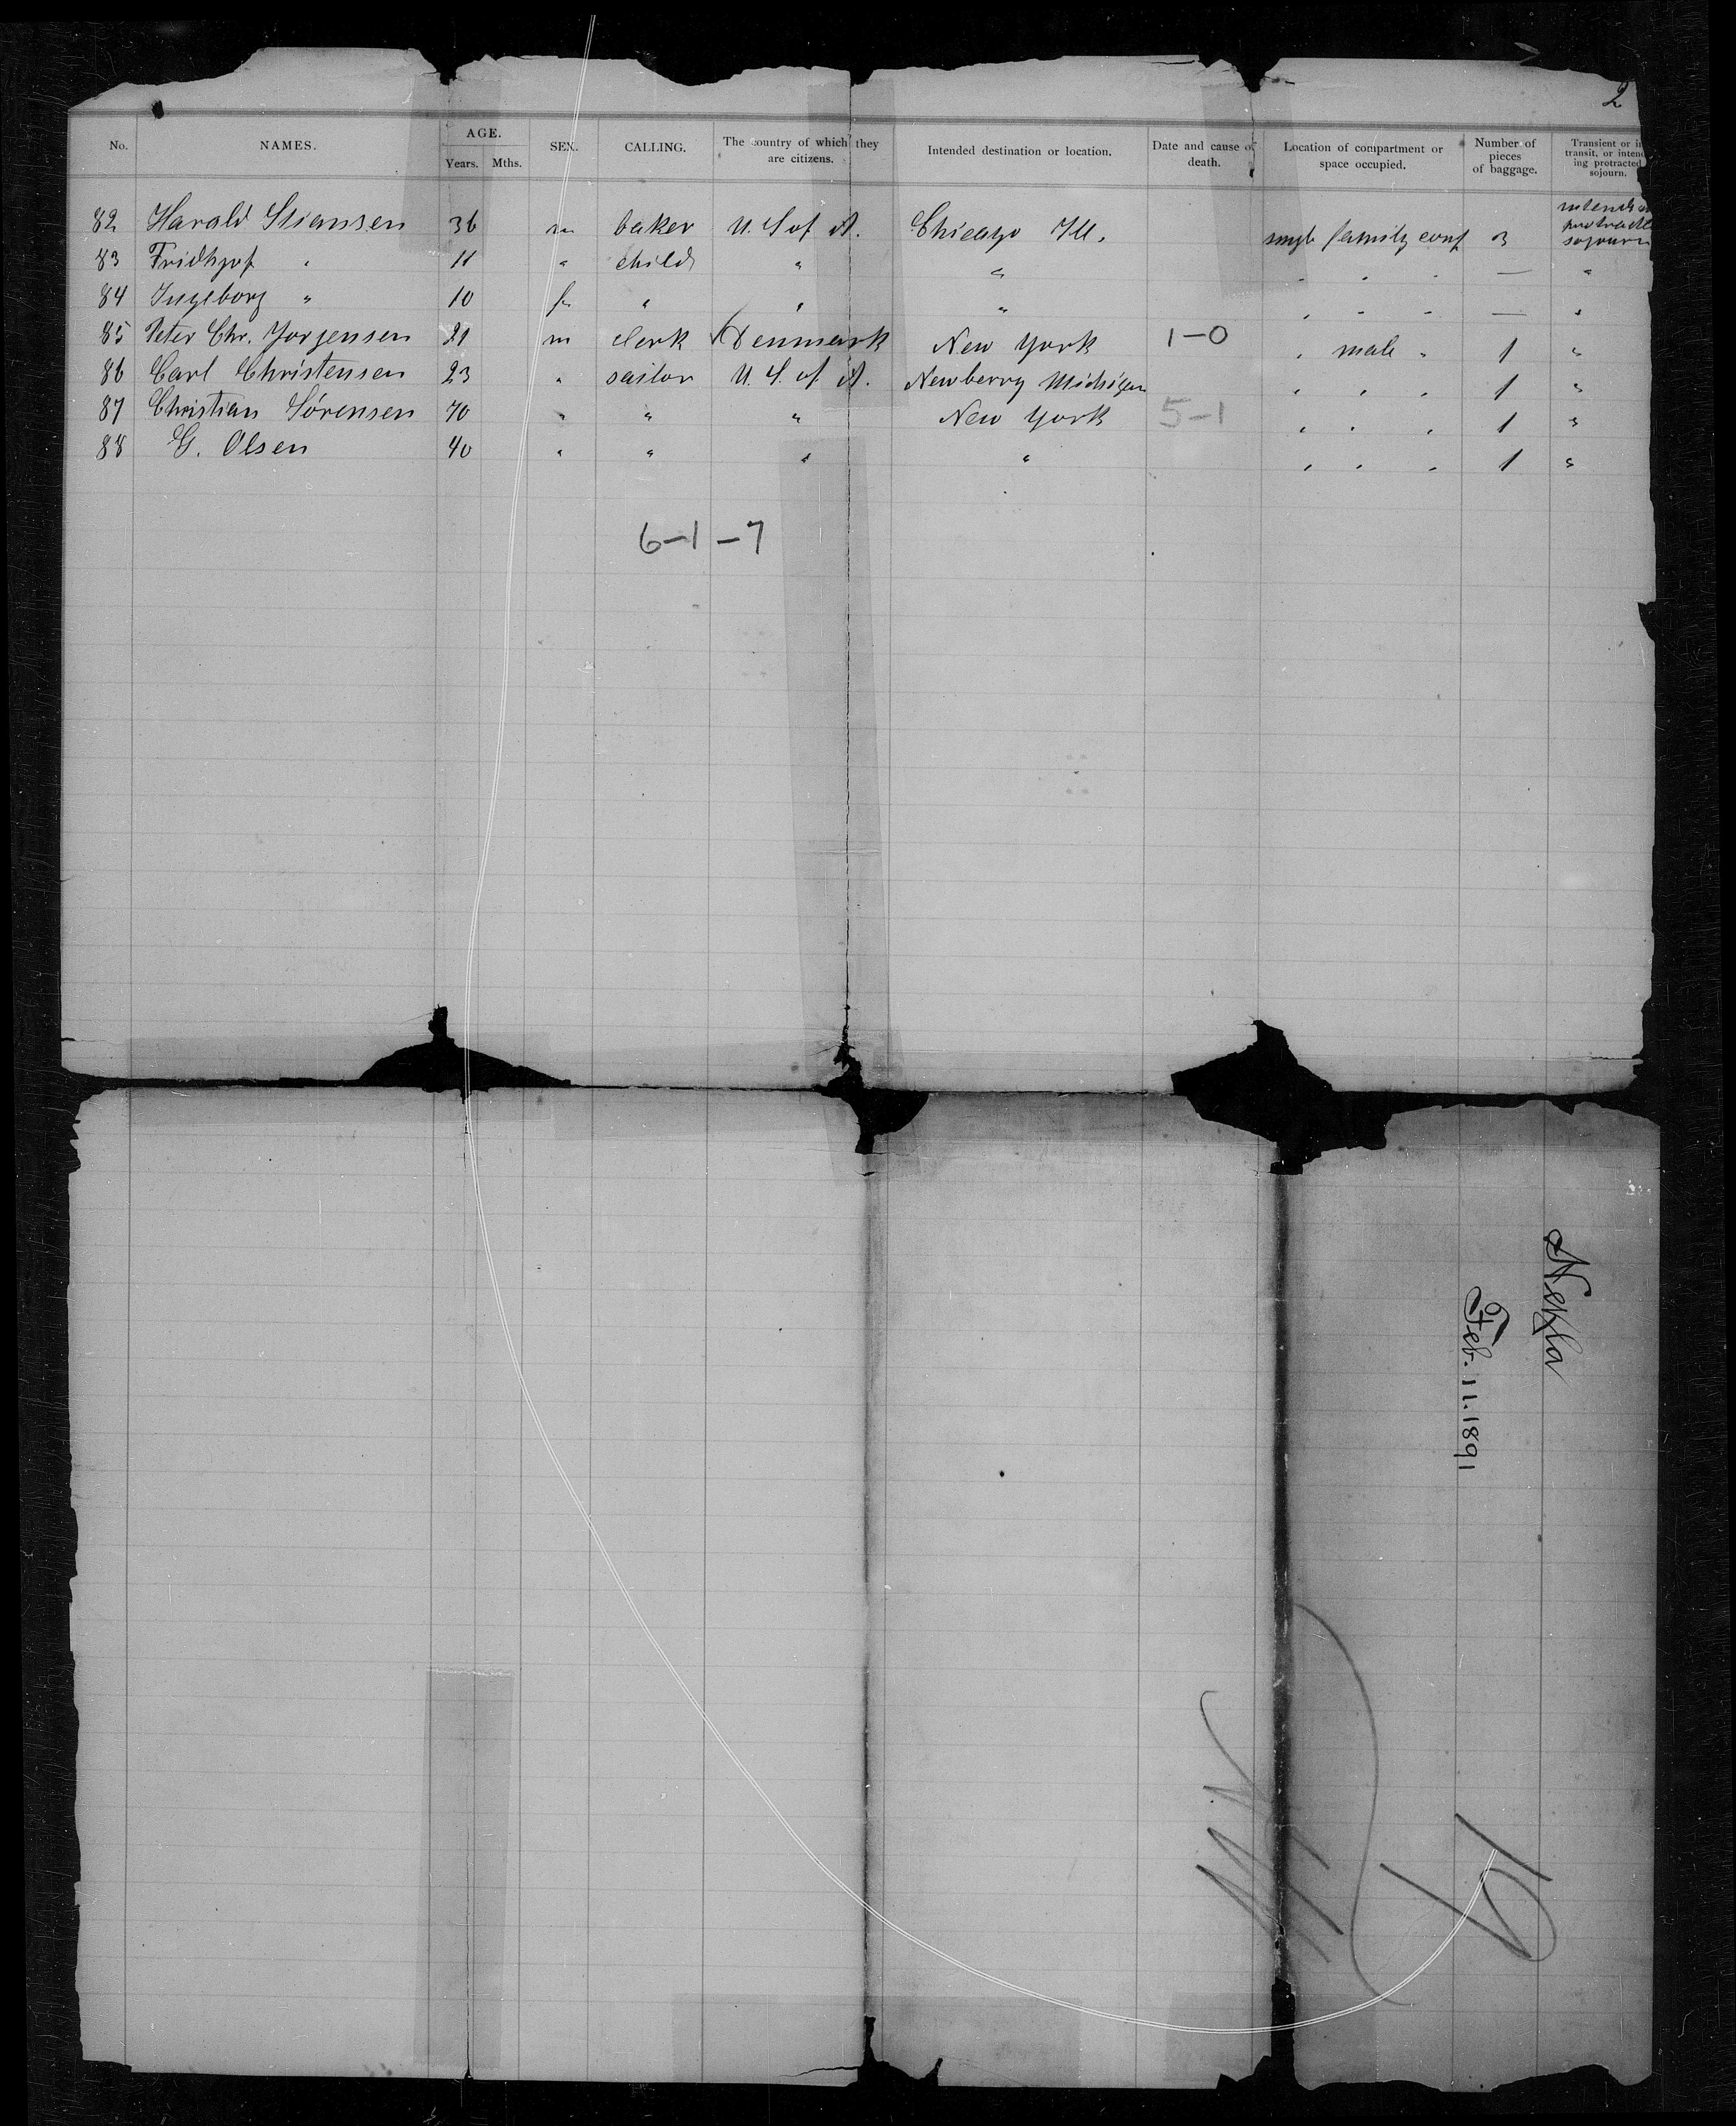 2
No. NAMES. AGE. Years. Mths. SEX. CALLING. The country of which they are citizens. Intended destination or location. Date and cause of death. Location of compartment or space occupied. Number of pieces of baggage. Transient or in transit, or intending protracted sojourn.
82 Harald Stiansen 36 m baker U. S of A. Chicago Ill. family 3 sojourn
83 Fridtjof " 11 " child " " " " " — "
84 Ingeborg " 10 f " " " " " " — "
85 Peter Chr. Jorgensen 21 m clerk Denmark New York 1-0 " male " 1 "
86 Carl Christensen 23 " sailor U. S. of A. Newberry Michigan " " " 1 "
87 Christian Sörensen 40 " " " New York 5-1 " " " 1 "
88 G. Olsen 40 " " " " " " " 1 "
6-1-7
Hekla
Feb. 11. 1891